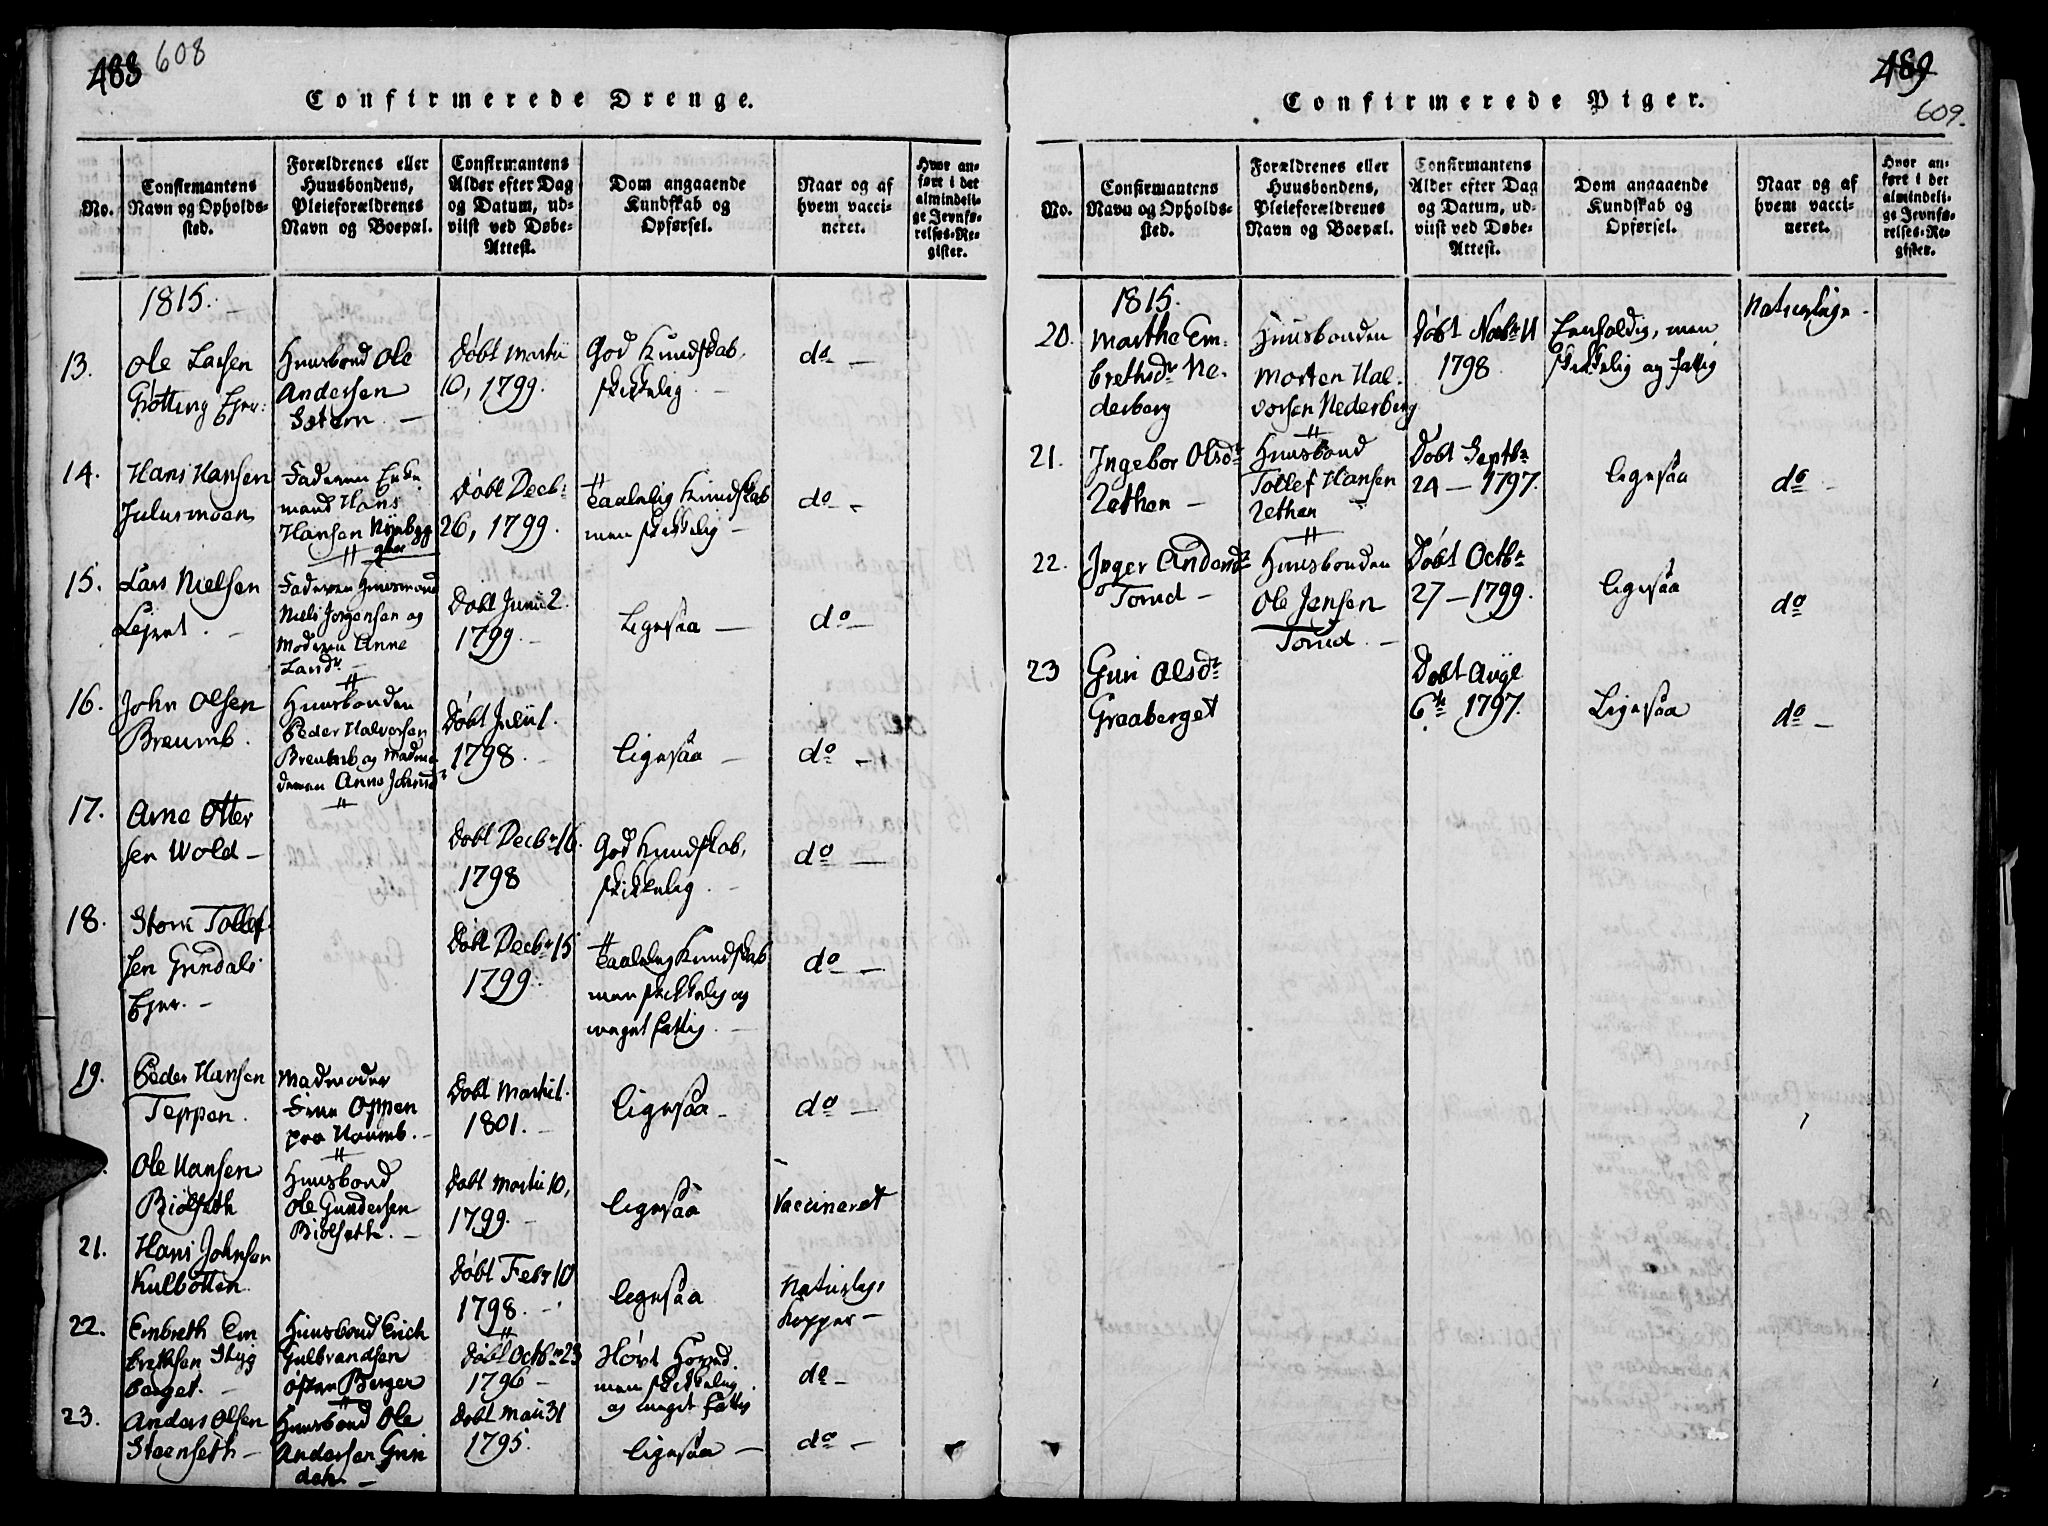 488 608
Confirmerede Drenge.
No.
Confirmantens
Navn og Opholds-
sted.
Forældrenes eller
Huusbondens,
Pleieforældrenes
Navn og Boepæl.
Confirmantens
Alder efter Dag
og Datum, ud-
viist ved Døbe-
Attest.
Dom angaaende
Kundskab og
Opførsel.
Naar og af
hvem vacci-
neret.
Hvor an-
ført i det
almindeli-
ge Jevnfø-
relses-Re-
gister.
1815.
13.
Ole Larsen
Grøtting Ejer:
Huusbond Ole
Andersen
Sætern. —
Døbt Martii
10, 1799.
God Kundskab,
skikkelig.
do —
14.
Hans Hansen
Julusmoen
Faderen Enke
mand Hans
Hansen
Døbt Decbr
26, 1799.
Taalelig Kundskab
men skikkelig —
do —
15.
Lars Nielsen
Lejret. —
Faderen Huusmand
Niels Jørgensen og
Moderen Anne
Larsdr. —
Døbt Junii 2.
1799. —
Ligesaa —
do —
16.
John Olsen
Bræumb.
Huusbonden
Peder Halvorsen
Bræumb og Madmo
deren Anne Johnsdr
Døbt Julii 1.
1798. —
Ligesaa —
do —
17.
Arne Otter
sen Wold —
Døbt Decbr 16.
1798
God Kundskab,
skikkelig. —
do —
18.
Storm Tollef
sen Grindals
Ejer. —
Døbt Decbr 15
1799.
Taalelig Kundskab
men skikkelig og
meget fattig. —
do —
19.
Peder Hansen
Teppen.
Madmoder
Frue Oppen
paa Houmb. —
Døbt Martii 1.
1801. —
Ligesaa —
do —
Ole Hansen
Biølseth
Huusbond
Ole Gundersen
Biølseth. —
Døbt Martii 10,
1799. —
Ligesaa
Vaccineret
21.
Hans Johnsen
Kulbotten
Døbt Febr 10
1798. —
Ligesaa
Naturlige
Kopper —
22.
Embreth Em
brethsen Styg
berget. —
Huusbond Erich
Gulbrandsen
østre Berger
Døbt Octbr 23
1796 —
men skikkelig
og meget fattig
do —
23.
Anders Olsen
Steenseth —
Huusbond Ole
Andersen Grin
dah. —
Døbt Maii 31
1795.
Ligesaa —
do —
489
609.
Confirmerede Piger.
No.
Confirmantens
Navn og Opholds-
sted.
Forældrenes eller
Huusbondens,
Pleieforældrenes
Navn og Boepæl.
Confirmantens
Alder efter Dag
og Datum, ud-
viist ved Døbe-
Attest.
Dom angaaende
Kundskab og
Opførsel.
Naar og af
hvem vacci-
neret.
Hvor an-
ført i det
almindeli-
ge Jevnfø-
relses-Re-
gister.
1815.
20.
Marthe Em-
brethsdr Ne-
derberg
Huusbonden
Morten Hal-
vorsen Nederberg
Døbt Novbr 11
1798.
Eenfoldig, men
skikkelig og fattig
Naturlige —
21.
Ingebor Olsdr
Zethen —
Huusbond
Tollef Hansen
Zethen —
Døbt Septbr
24 — 1797.
Ligesaa
do —
22.
Inger Andersdr
Torud —
Huusbonden
Ole Jensen
Torud. —
Døbt Octbr
27 — 1799.
Ligesaa
do
23
Guri Olsdr
Graaberget
Døbt Augt
6te 1797.
Ligesaa
do —